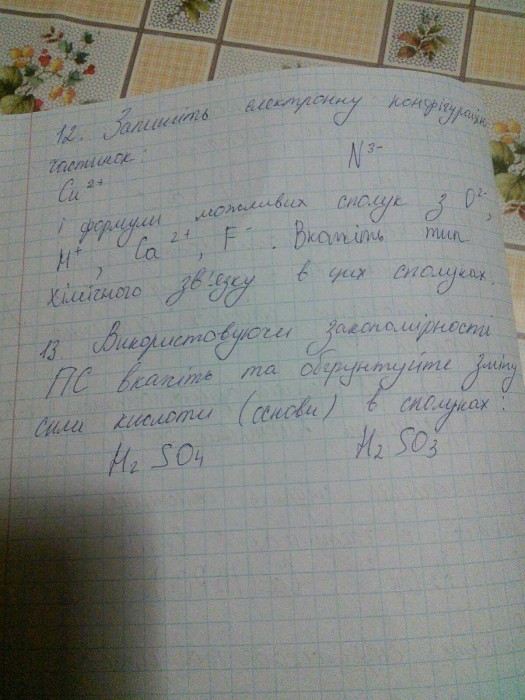 12. Запишіть електронну конфігурацію
частинок:
Cu²⁺ N³⁻
і формули можливих сполук з O²⁻,
H⁺, Ca²⁺, F⁻. Вкажіть тип
хімічного зв'язку в цих сполуках.
13. Використовуючи закономірності
ПС вкажіть та обґрунтуйте зміну
сили кислоти (основи) в сполуках:
H₂SO₄ H₂SO₃